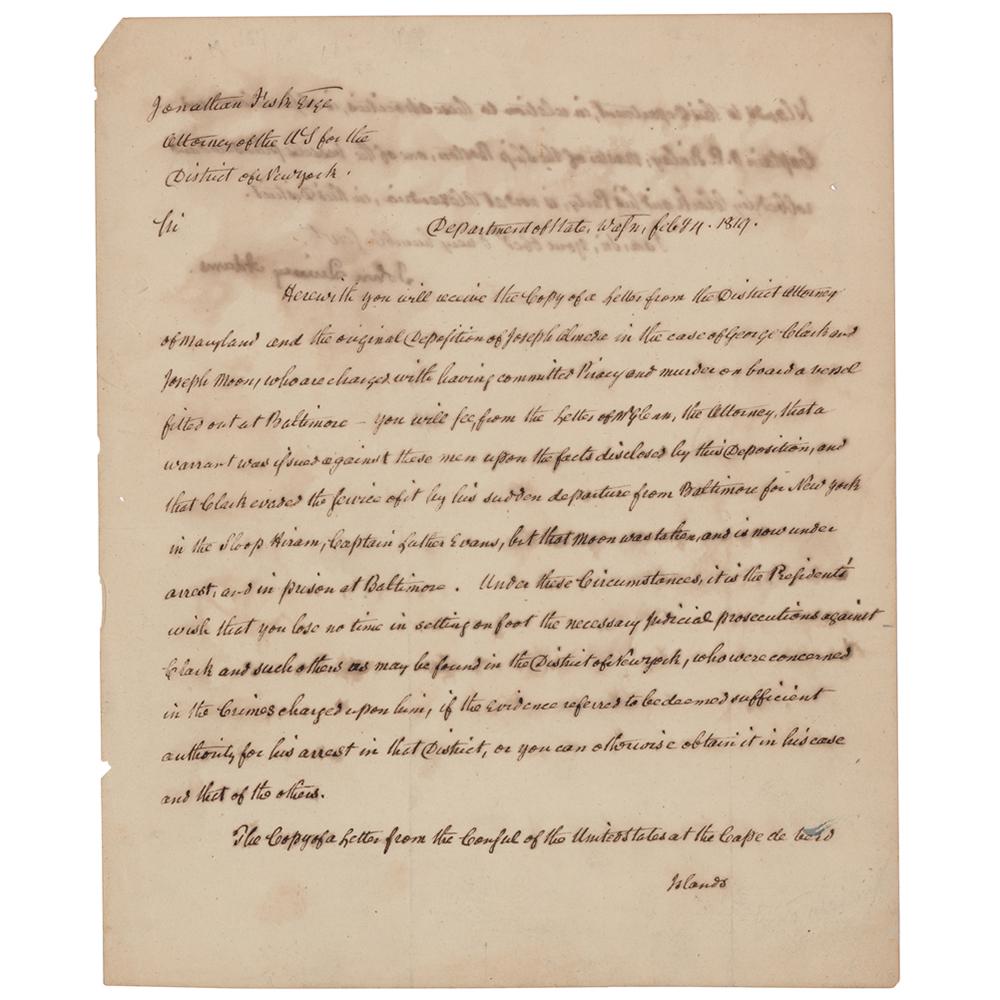 Jonathan Fisk Esqe
Attorney of the US for the
District of New york.
Sir
Department of State, Wasn, feby 4. 1819.
Herewith you will receive the Copy of a Letter from the District Attorney
of Maryland and the original Deposition of Joseph Almeda in the case of George Clark and
Joseph Moon, who are charged with having committed Piracy and murder on board a vessel
fitted out at Baltimore – you will see, from the Letter of Mr Glenn, the Attorney, that a
warrant was issued against these men upon the facts disclosed by this Deposition, and
that Clark evaded the service of it by his sudden departure from Baltimore for New York
in the Sloop Hiram, Captain Luther Evans, but that Moon was taken, and is now under
arrest, and in prison at Baltimore. Under these Circumstances, it is the Presidents'
wish that you lose no time in setting on foot the necessary judicial prosecutions against
Clark and such others as may be found in the District of New york, who were concerned
in the Crimes charged upon him, if the Evidence referred to be deemed sufficient
authority for his arrest in that District, or you can otherwise obtain it in his case
and that of the others.
The Copy of a Letter from the Consul of the United States at the Cape de Verd
Islands
John Quincy Adams.